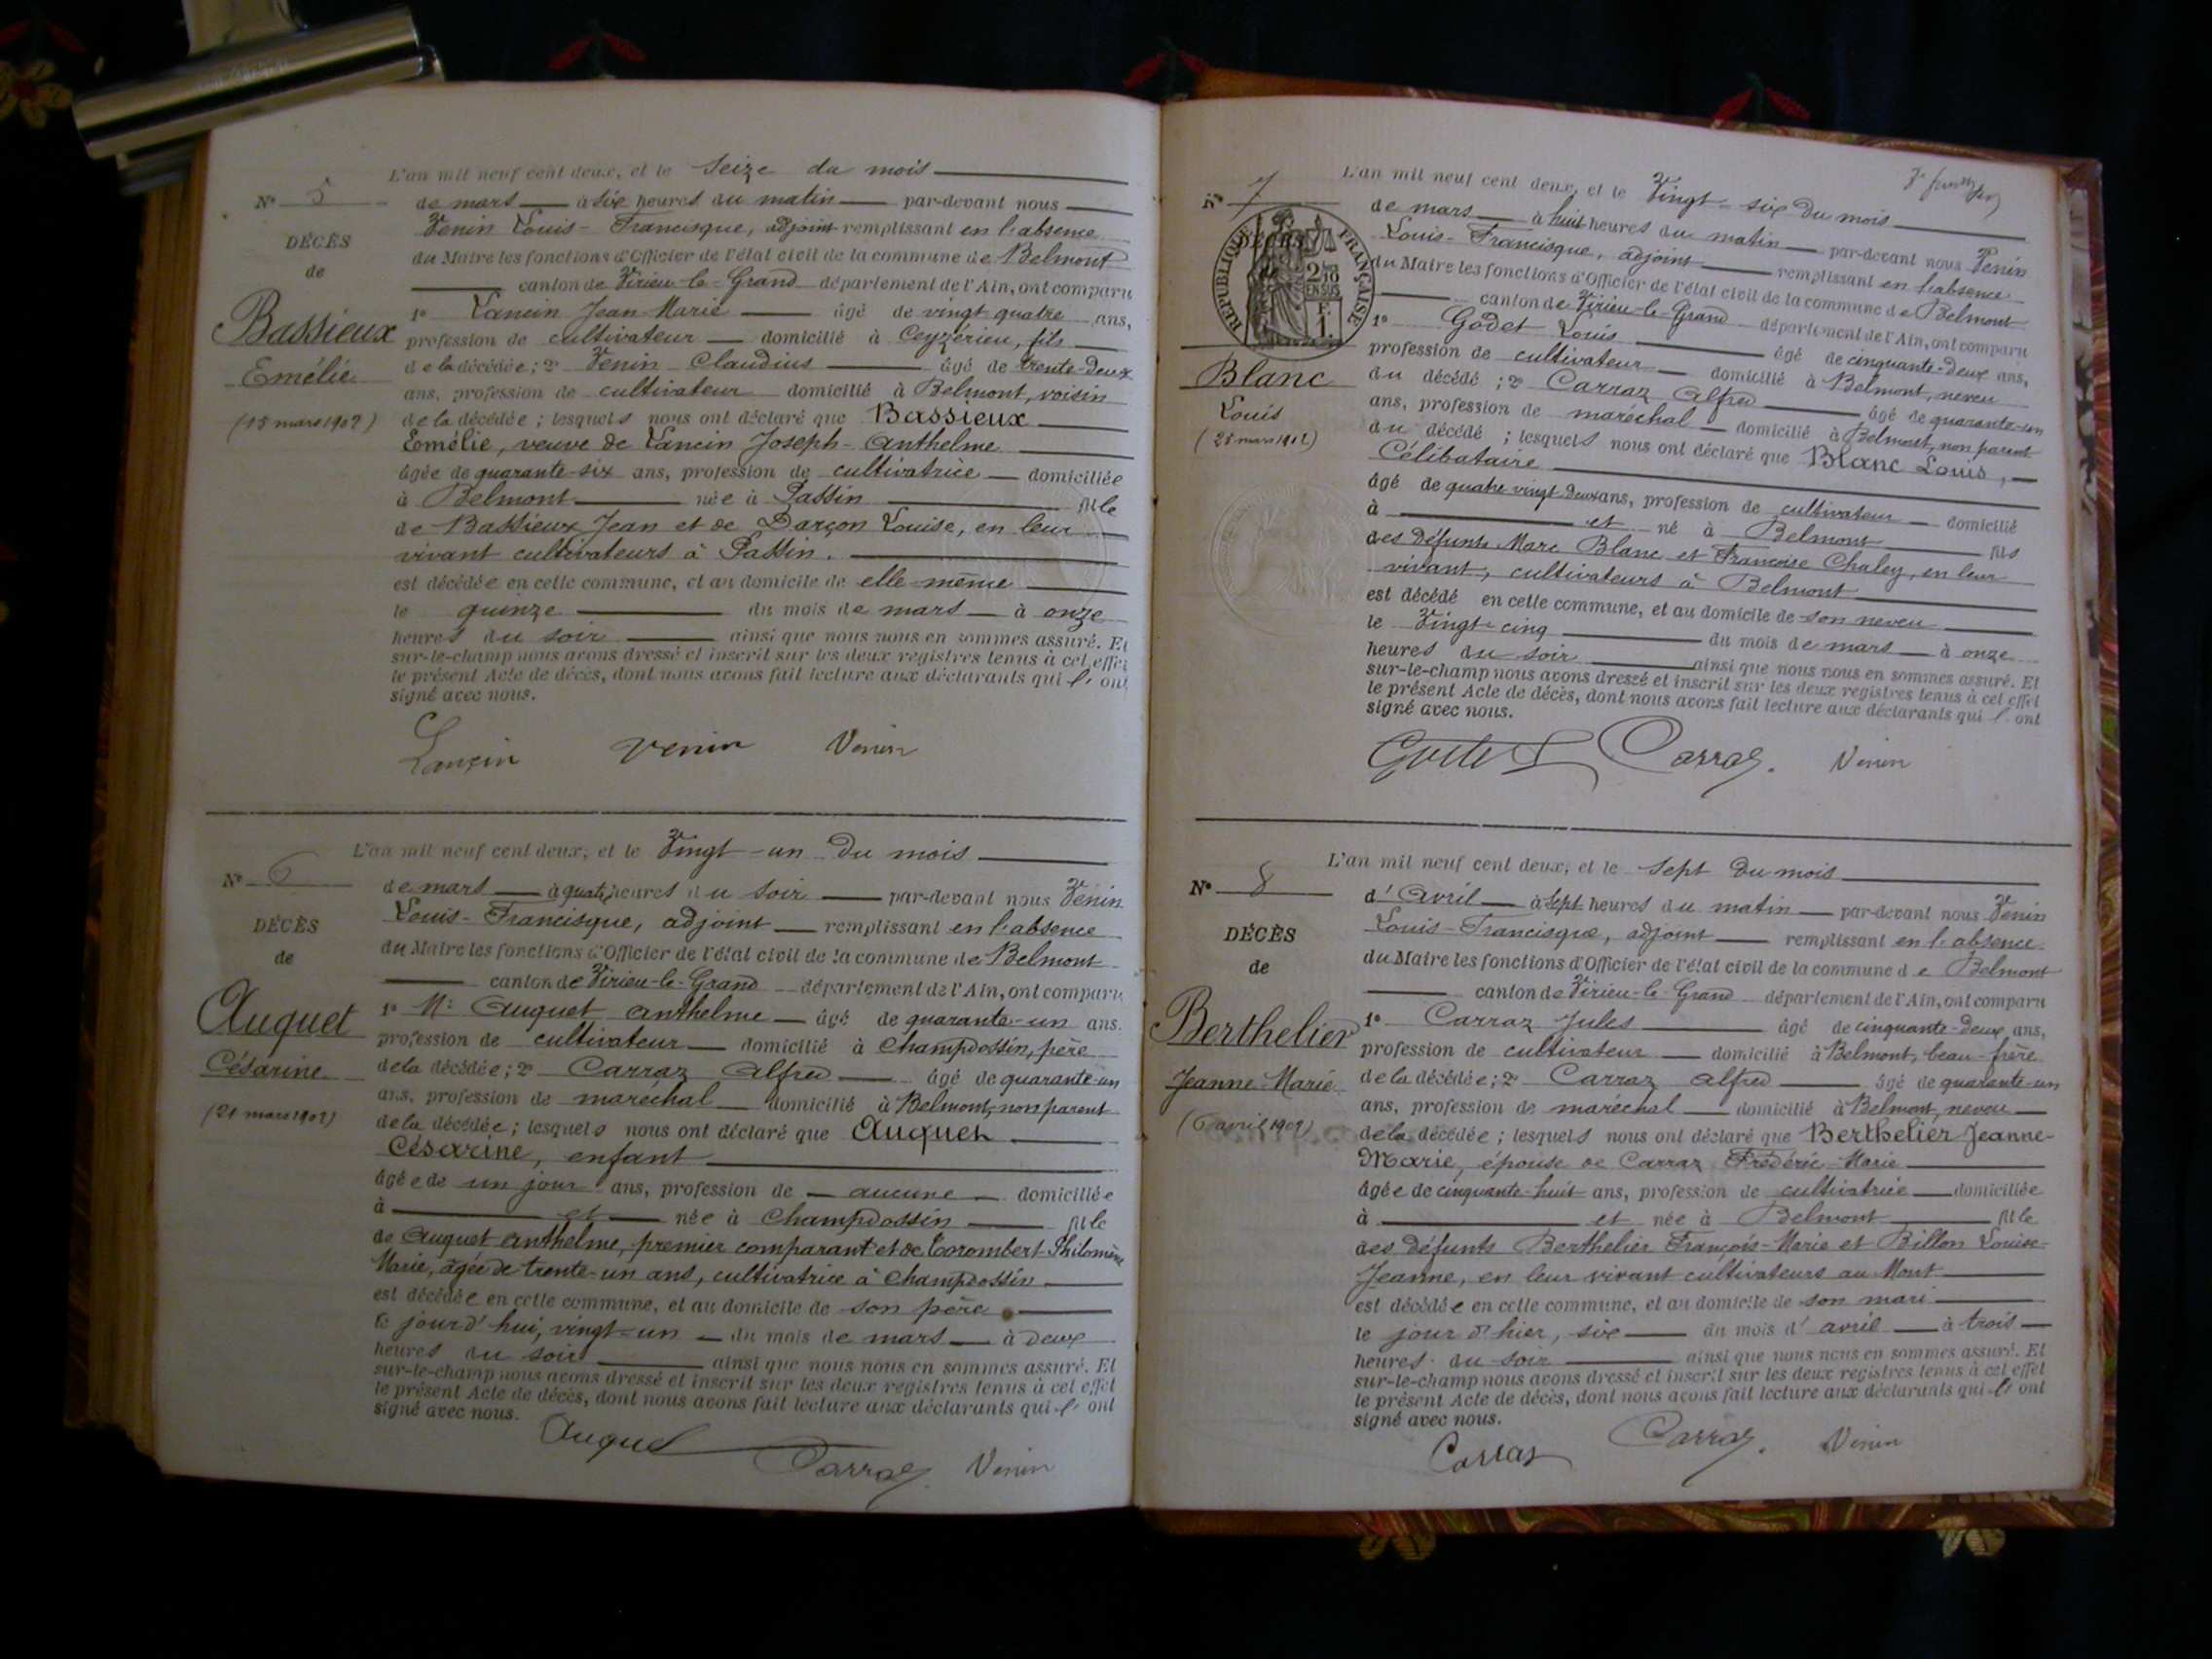 L'an mil neuf cent deux, et le Seize du mois
N° 5
de mars à six heures du matin par-devant nous
Venin Louis-Francisque, adjoint remplissant en l'absence
DÉCÈS
du Maire les fonctions d'Officier de l'état civil de la commune de Belmont
de
canton de Virieu-le-Grand département de l'Ain, ont comparu
Bassieux
1° Lancin Jean Marie âgé de vingt quatre ans,
profession de cultivateur domicilié à Ceyzérieu, fils
Emélie
de la décédée; 2° Venin Claudius âgé de trente-deux
ans, profession de cultivateur domicilié à Belmont, voisin
(15 mars 1902)
de la décédée; lesquels nous ont déclaré que Bassieux
Emélie, veuve de Lancin Joseph-Anthelme
âgée de quarante-six ans, profession de cultivatrice domiciliée
à Belmont née à Passin fille
de Bassieux Jean et de Darçon Louise, en leur
vivant cultivateurs à Passin.
est décédée en cette commune, et au domicile de elle-même
le quinze du mois de mars à onze
heures du soir ainsi que nous nous en sommes assuré. Et
sur-le-champ nous avons dressé et inscrit sur les deux registres tenus à cet effet
le présent Acte de décès, dont nous avons fait lecture aux déclarants qui l' ont
signé avec nous.
Lancin Venin Venin
L'an mil neuf cent deux, et le Vingt-un du mois
N° 6
de mars à quatre heures du soir par-devant nous Venin
Louis-Francisque, adjoint remplissant en l'absence
DÉCÈS
du Maire les fonctions d'Officier de l'état civil de la commune de Belmont
de
canton de Virieu-le-Grand département de l'Ain, ont comparu
Auguet
1° Mr Auguet Anthelme âgé de quarante-un ans.
profession de cultivateur domicilié à Champdossin, père
Césarine
de la décédée; 2° Carraz Alfred âgé de quarante-un
ans, profession de maréchal domicilié à Belmont, non parent
(21 mars 1902)
de la décédée; lesquels nous ont déclaré que Auguet
Césarine, enfant
âgée de un jour ans, profession de aucune domiciliée
à et née à Champdossin fille
de Auguet Anthelme, premier comparant et de Corombert Philomène
Marie, âgée de trente-un ans, cultivatrice à Champdossin
est décédée en cette commune, et au domicile de son père
le jourd'hui, vingt-un du mois de mars à deux
heures du soir ainsi que nous nous en sommes assuré. Et
sur-le-champ nous avons dressé et inscrit sur les deux registres tenus à cet effet
le présent Acte de décès, dont nous avons fait lecture aux déclarants qui l' ont
signé avec nous.
Auguet Carraz Venin
L'an mil neuf cent deux, et le Vingt-six du mois
N° 7
de mars à huit heures du matin par-devant nous Venin
Louis-Francisque, adjoint remplissant en l'absence
RÉPUBLIQUE FRANÇAISE
du Maire les fonctions d'Officier de l'état civil de la commune de Belmont
canton de Virieu-le-Grand département de l'Ain, ont comparu
1° Godet Louis âgé de cinquante-deux ans,
profession de cultivateur domicilié à Belmont, neveu
Blanc
du décédé; 2° Carraz Alfred âgé de quarante-un
Louis
ans, profession de maréchal domicilié à Belmont, non parent
(25 mars 1902)
du décédé; lesquels nous ont déclaré que Blanc Louis,
Célibataire
âgé de quatre vingt-deux ans, profession de cultivateur domicilié
à et né à Belmont fils
des défunts Marc Blanc et Françoise Chaley, en leur
vivant, cultivateurs à Belmont
est décédé en cette commune, et au domicile de son neveu
le Vingt-cinq du mois de mars à onze
heures du soir ainsi que nous nous en sommes assuré. Et
sur-le-champ nous avons dressé et inscrit sur les deux registres tenus à cet effet
le présent Acte de décès, dont nous avons fait lecture aux déclarants qui l' ont
signé avec nous.
Carraz. Venin
L'an mil neuf cent deux, et le Sept du mois
N° 8
d'Avril à sept heures du matin par-devant nous Venin
Louis-Francisque, adjoint remplissant en l'absence
DÉCÈS
du Maire les fonctions d'Officier de l'état civil de la commune de Belmont
de
canton de Virieu-le-Grand département de l'Ain, ont comparu
Berthelier
1° Carraz Jules âgé de cinquante-deux ans,
profession de cultivateur domicilié à Belmont, beau-frère
Jeanne-Marie
de la décédée; 2° Carraz Alfred âgé de quarante-un
ans, profession de maréchal domicilié à Belmont, neveu
(6 avril 1902)
de la décédée; lesquels nous ont déclaré que Berthelier Jeanne-
Marie, épouse de Carraz Frédéric-Marie
âgée de cinquante-huit ans, profession de cultivatrice domiciliée
à et née à Belmont fille
des défunts Berthelier François-Marie et Billon Louise-
Jeanne, en leur vivant cultivateurs au Mont
est décédée en cette commune, et au domicile de son mari
le jour d'hier, six du mois d'avril à trois
heures du soir ainsi que nous nous en sommes assuré. Et
sur-le-champ nous avons dressé et inscrit sur les deux registres tenus à cet effet
le présent Acte de décès, dont nous avons fait lecture aux déclarants qui l' ont
signé avec nous.
Carraz Carraz. Venin